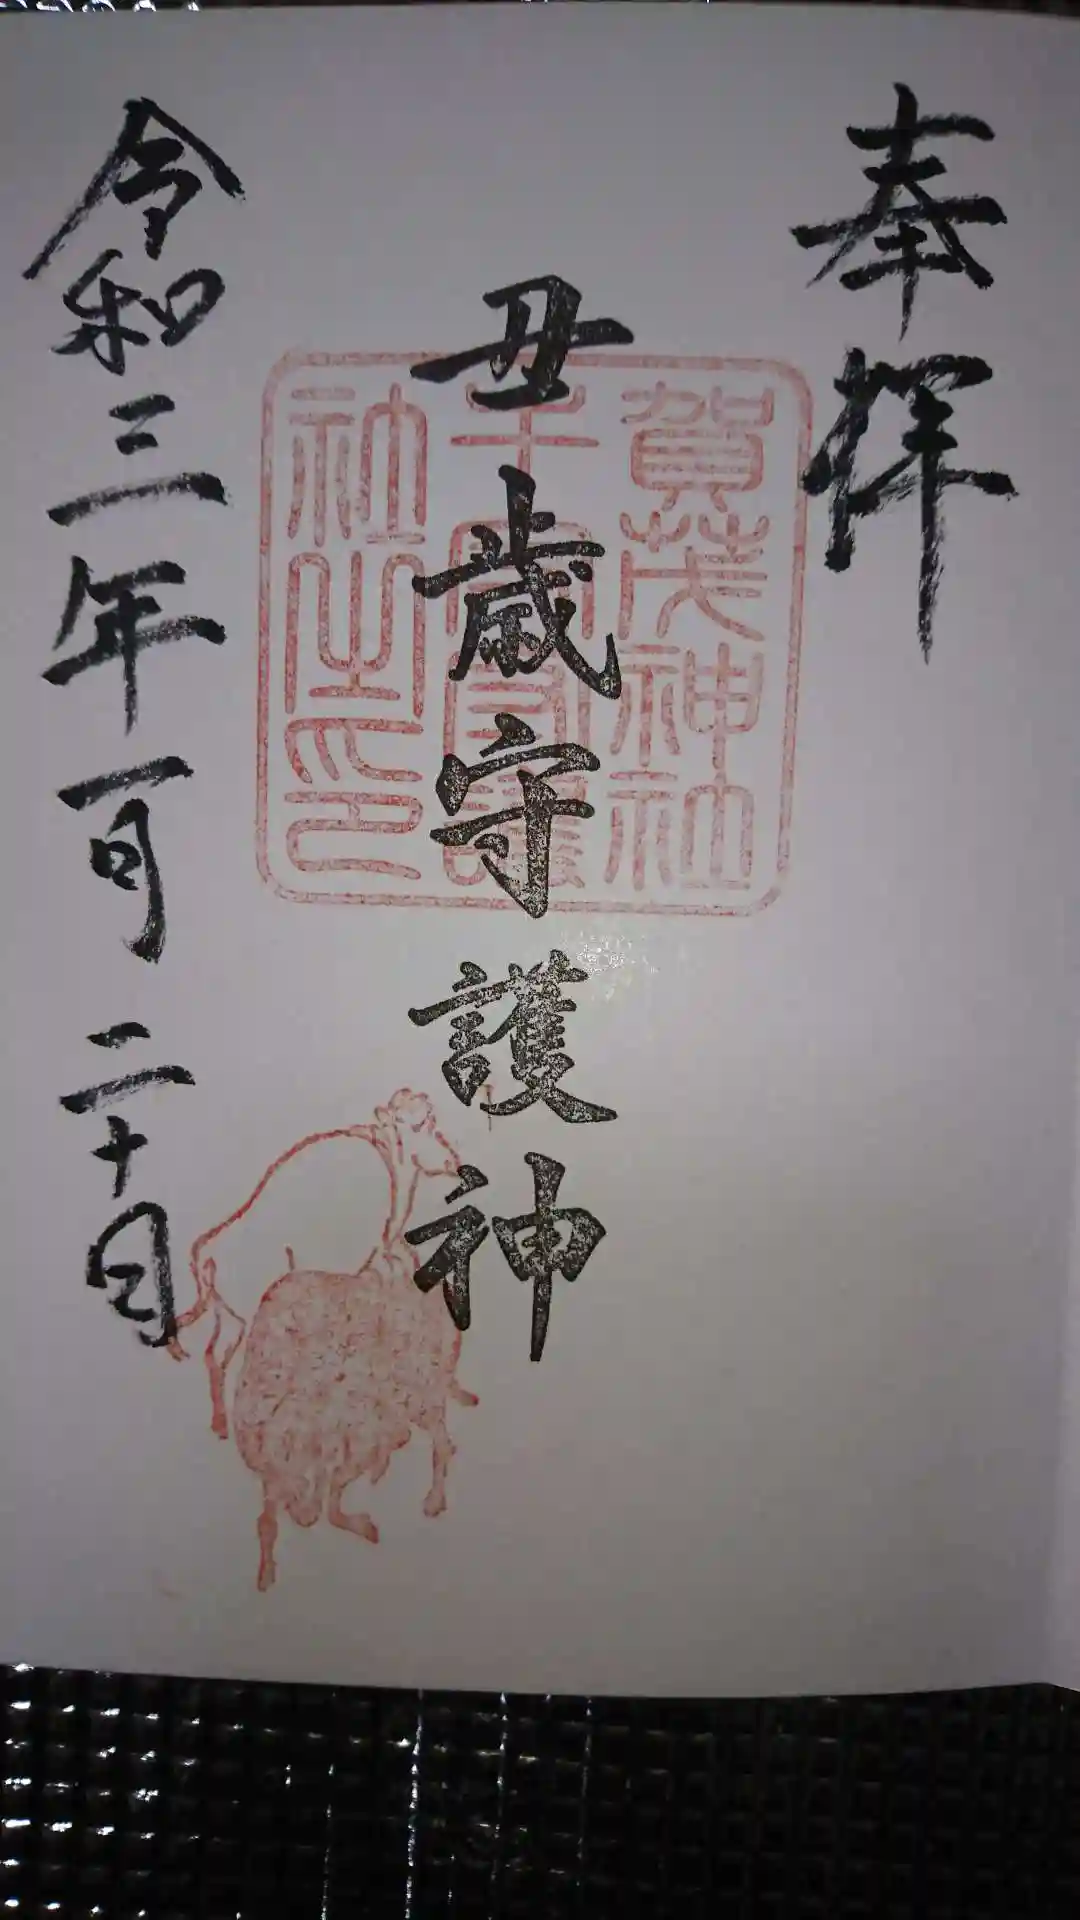 奉拝
賀茂神社
丑歳守護神
社之印
令和三年一月二十日